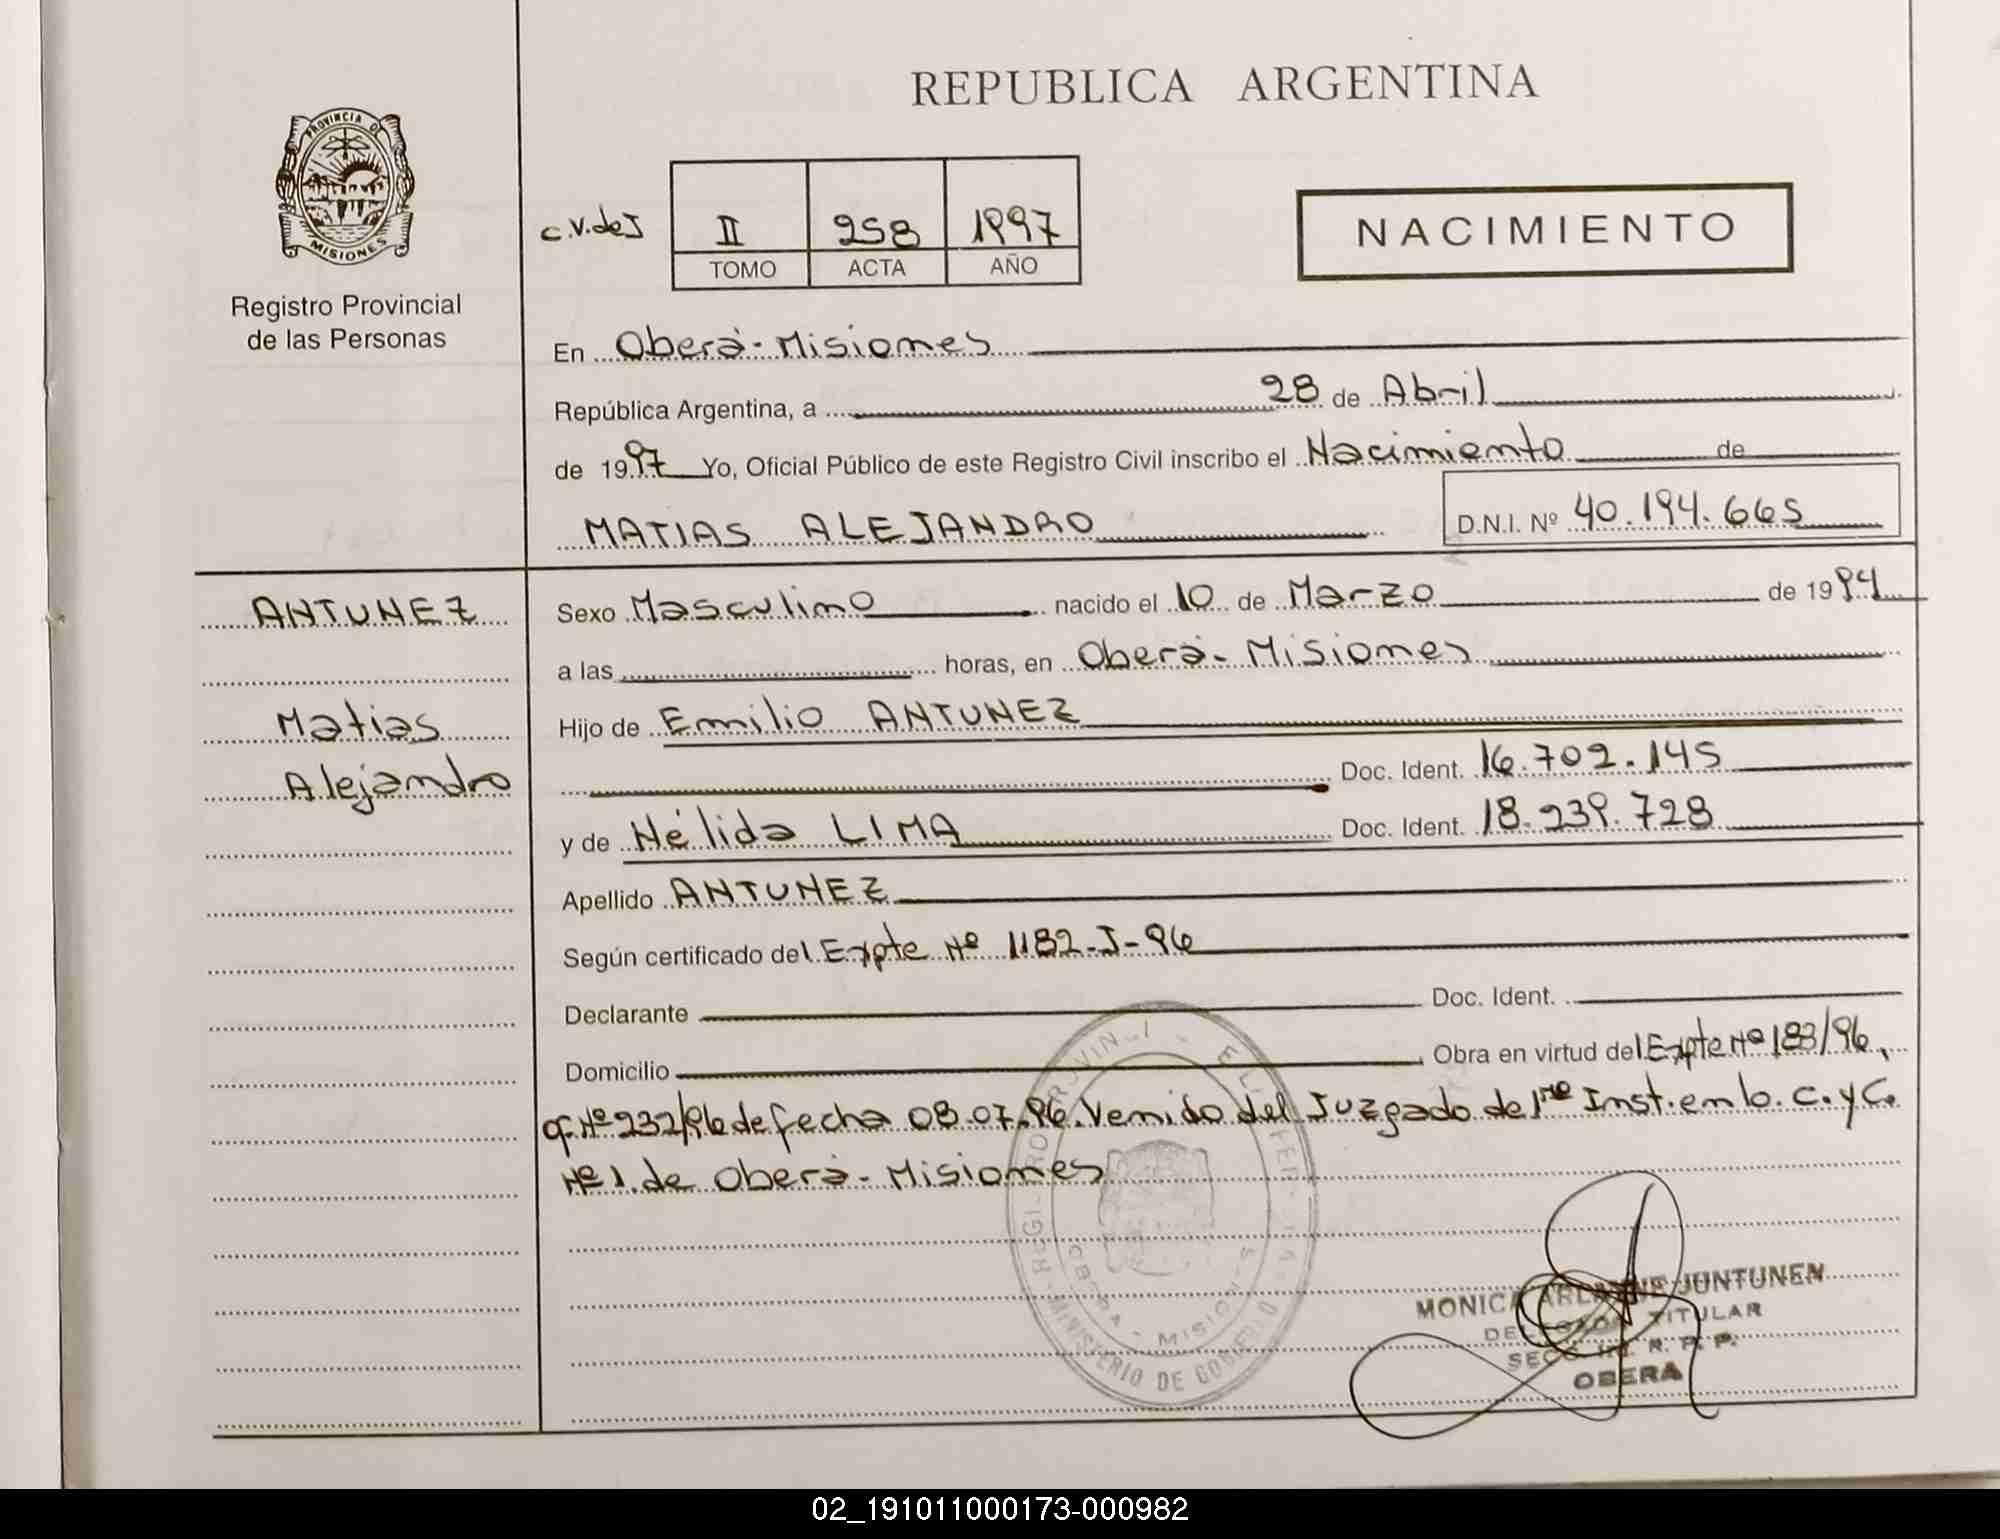 REPUBLICA ARGENTINA
PROVINCIA DE
MISIONES
Registro Provincial
de las Personas
c.v.de J
II 258 1997
TOMO ACTA AÑO
NACIMIENTO
En Oberà - Misiones
República Argentina, a 28 de Abril
de 1997 Yo, Oficial Público de este Registro Civil inscribo el Nacimiento de
MATIAS ALEJANDRO D.N.I. Nº 40.194.665
ANTUNEZ
Matias
Alejandro
Sexo Masculino nacido el 10 de Marzo de 1994
a las horas, en Oberà - Misiones
Hijo de Emilio ANTUNEZ
Doc. Ident. 16.702.145
y de Nélida LIMA Doc. Ident. 18.239.728
Apellido ANTUNEZ
Según certificado del Expte Nº 1182-J-96
Declarante Doc. Ident.
Domicilio Obra en virtud del Expte Nº 183/96,
of. Nº 232/96 de fecha 08.07.96. Venido del Juzgado de 1ra Inst. en lo. C. y C.
Nº 1. de Oberà - Misiones
MINISTERIO DE GOBIERNO
OBERA - MISIONES
MONICA JUNTUNEN
DELEGADA TITULAR
SECC. R. P. P.
OBERA
02_191011000173-000982